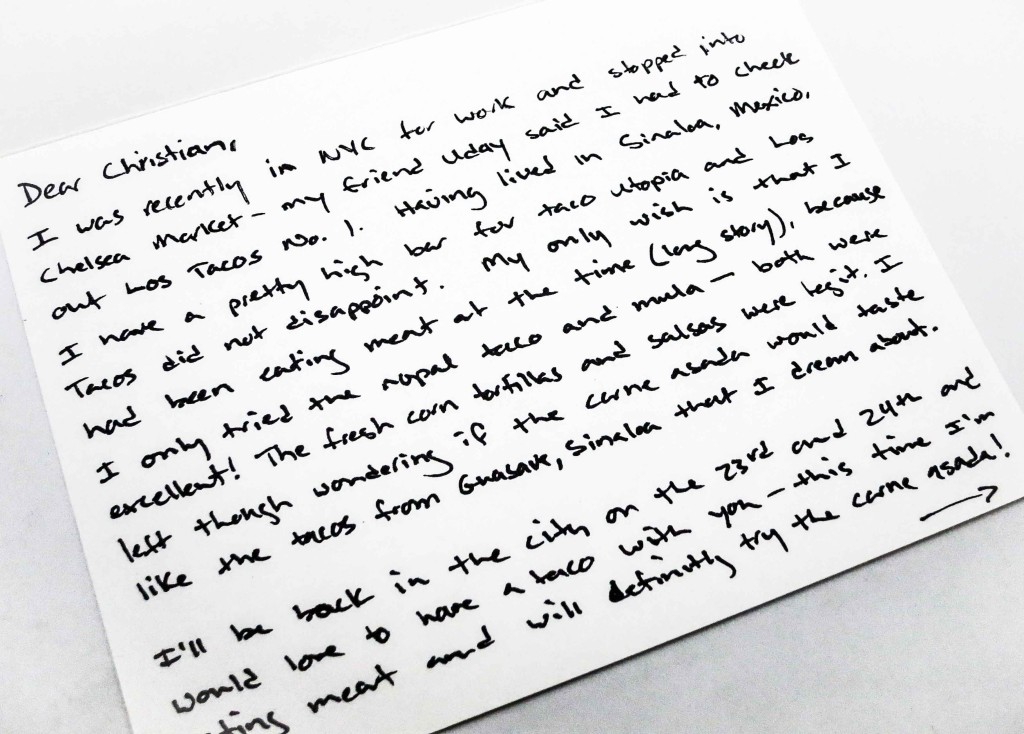 Dear Christian,
I was recently in NYC for work and stopped into
Chelsea Market - my friend Uday said I had to check
out Los Tacos No. 1. Having lived in Sinaloa, Mexico,
I have a pretty high bar for taco utopia and Los
Tacos did not disappoint. My only wish is that I
had been eating meat at the time (long story), because
I only tried the nopal taco and mula - both were
excellent! The fresh corn tortillas and salsas were legit. I
left though wondering if the carne asada would taste
like the tacos from Guasave, Sinaloa that I dream about.
I'll be back in the city on the 23rd and 24th and
would love to have a taco with you - this time I'm
ating meat and will definitly try the carne asada!
→